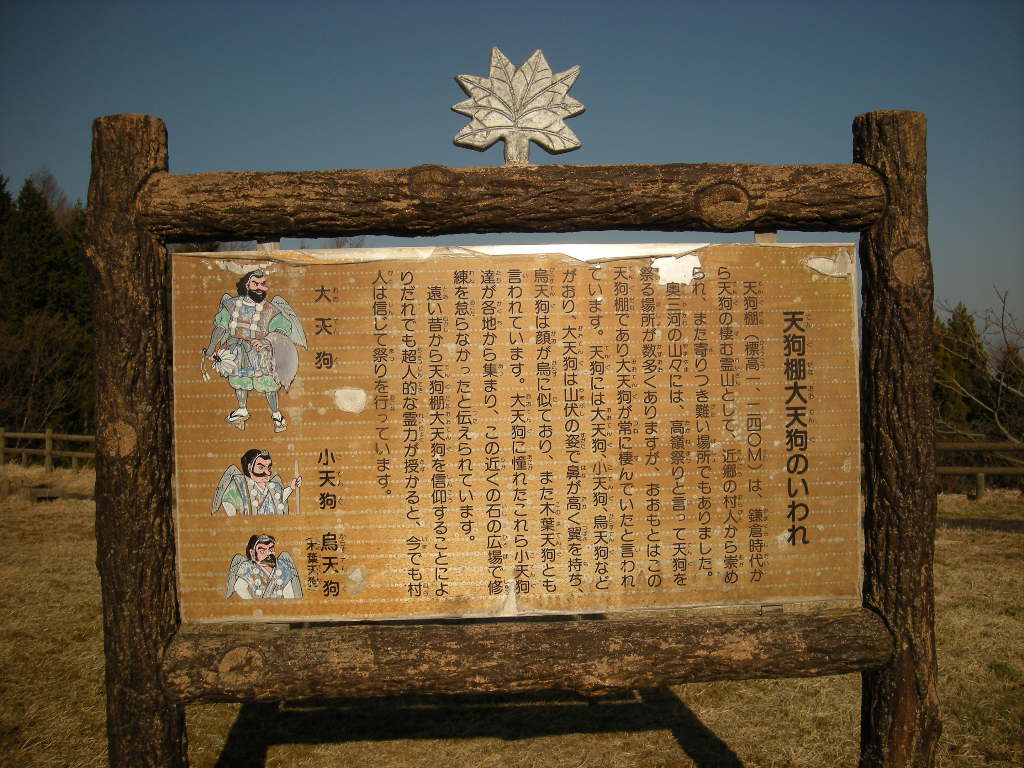 天狗棚大天狗のいわれ
天狗棚(標高一、二四〇M)は、鎌倉時代か
ら天狗の棲む霊山として、近郷の村人から崇め
られ、また寄りつき難い場所でもありました。
奥三河の山々には、高嶺祭りと言って天狗を
祭る場所が数多くありますが、おおもとはこの
天狗棚であり大天狗が常に棲んでいたと言われ
ています。天狗には大天狗、小天狗、烏天狗など
がおり、大天狗は山伏の姿で鼻が高く翼を持ち、
烏天狗は顔が烏に似ており、また木葉天狗とも
言われています。大天狗に憧れたこれら小天狗
達が各地から集まり、この近くの石の広場で修
練を怠らなかったと伝えられています。
遠い昔から天狗棚大天狗を信仰することによ
りだれでも超人的な霊力が授かると、今でも村
人は信じて祭りを行っています。
大天狗
小天狗
烏天狗
(木葉天狗)